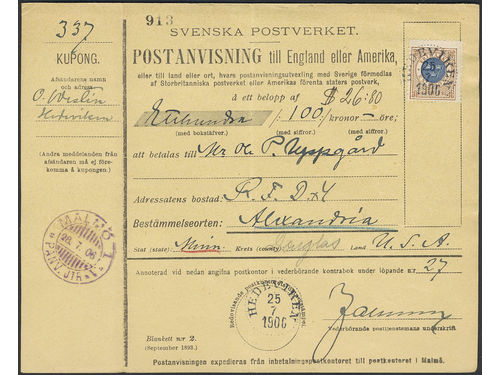 913
337
SVENSKA POSTVERKET.
KUPONG.
POSTANVISNING till England eller Amerika,
Afsändarens namn
och adress:
eller till land eller ort, hvars postanvisningsutvexling med Sverige förmedlas
af Storbritanniska postverket eller Amerikas förenta staters postverk,
HEDEVIKEN
1906
O. Westin
Hedeviken
å ett belopp af $ 26:80
Etthundra /:100/ kronor — öre;
(med bokstäfver.) (med siffror.) (med siffror.)
(Andra meddelanden från
afsändaren må ej före-
komma å kupongen.)
att betalas till Mr Ole P. Uppgård
Adressatens bostad: R. F. D. 4
Bestämmelseorten: Alexandria
MALMÖ 1
28.7.06
PANV. UTR.
Stat (state): Minn. Krets (county): Douglas Land: U. S. A
Annoterad vid nedan angifna postkontor i vederbörande kontrabok under löpande nr. 27
HEDEVIKEN
25
7
1906
Vederbörande posttjenstemans underskrift.
Blankett nr 2.
(September 1893.)
Postanvisningen expedieras från inbetalningspostkontoret till postkontoret i Malmö.